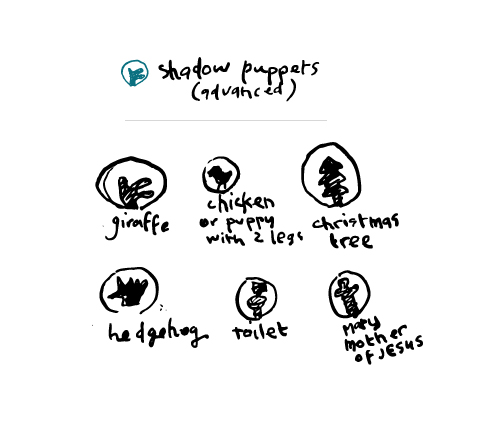 shadow puppets
(advanced)
giraffe
chicken
or puppy
with 2 legs
christmas
tree
hedgehog
toilet
mary
mother
of JESUS